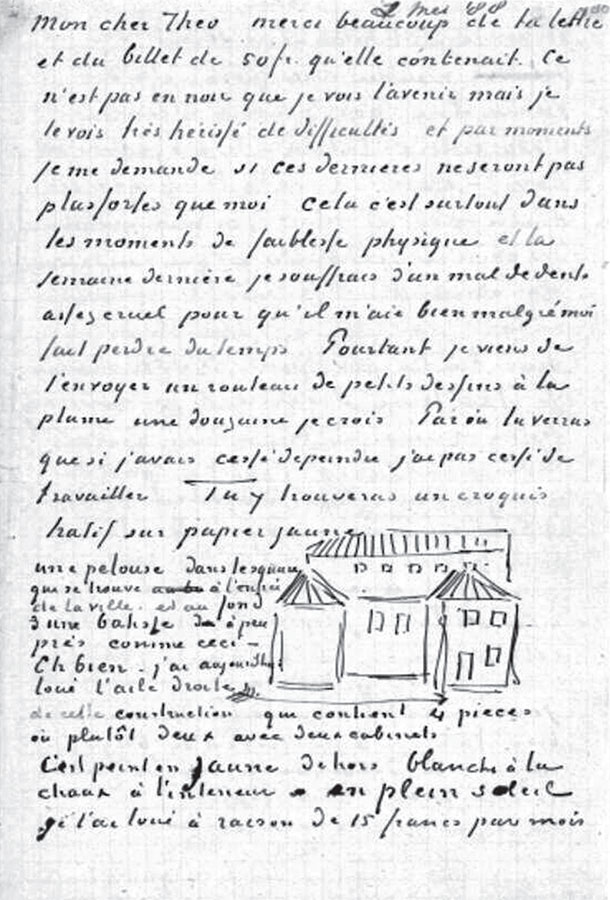 2 Mei 88
Mon cher Theo merci beaucoup de ta lettre
et du billet de 50 fr. qu'elle contenait. Ce
n'est pas en noir que je vois l'avenir mais je
le vois très hérissé de difficultés et par moments
je me demande si ces dernieres ne seront pas
plus fortes que moi cela c'est surtout dans
les moments de faiblesse physique et la
semaine dernière je souffrais d'un mal de dents
assez cruel pour qu'il m'aie bien malgré moi
fait perdre du temps Pourtant je viens de
t'envoyer un rouleau de petits dessins à la
plume une douzaine je crois Par où tu verras
que si j'avais cessé de peindre j'ai pas cessé de
travailler Tu y trouveras un croquis
hatif sur papier jaune
une pelouse dans le square
qui se trouve à l'entrée
de la ville. et au fond
3 une batisse à peu
près comme ceci –
Eh bien – j'ai aujourd'hui
loué l'aile droite
de cette construction qui contient 4 pieces
ou plutôt deux avec deux cabinets
C'est peint en jaune dehors blanchi à la
chaux à l'interieur en plein soleil
je l'ai loué à raison de 15 francs par mois